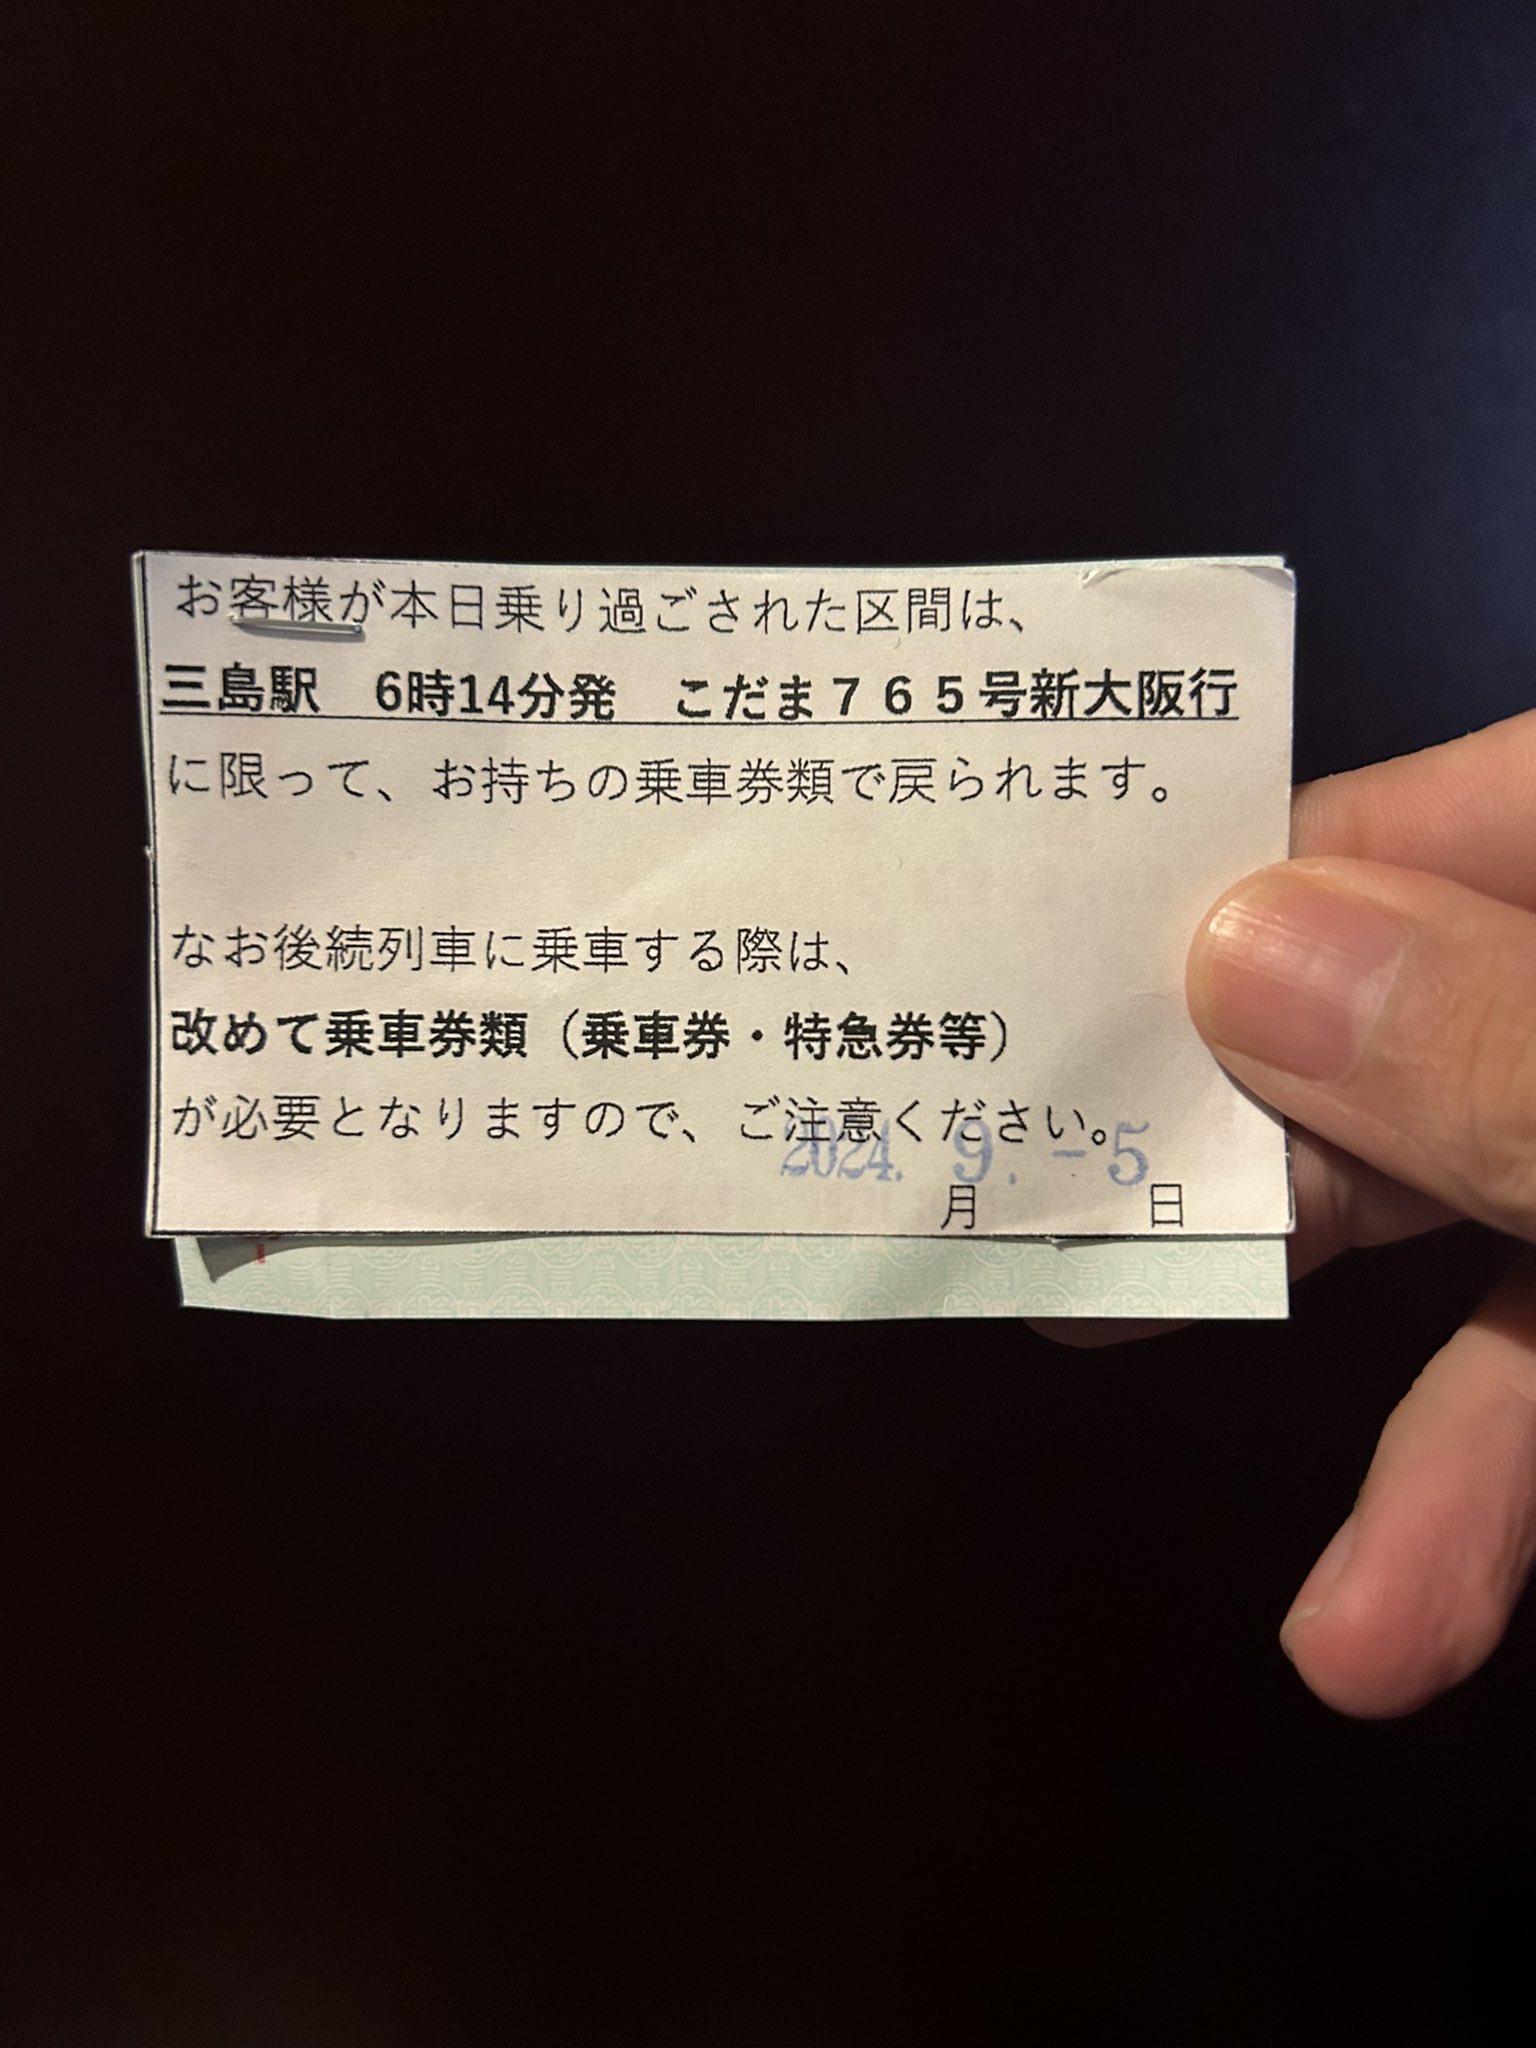 お客様が本日乗り過ごされた区間は、
三島駅　6時14分発　こだま７６５号新大阪行
に限って、お持ちの乗車券類で戻られます。
なお後続列車に乗車する際は、
改めて乗車券類（乗車券・特急券等）
が必要となりますので、ご注意ください。
2024. 9. -5
月　日